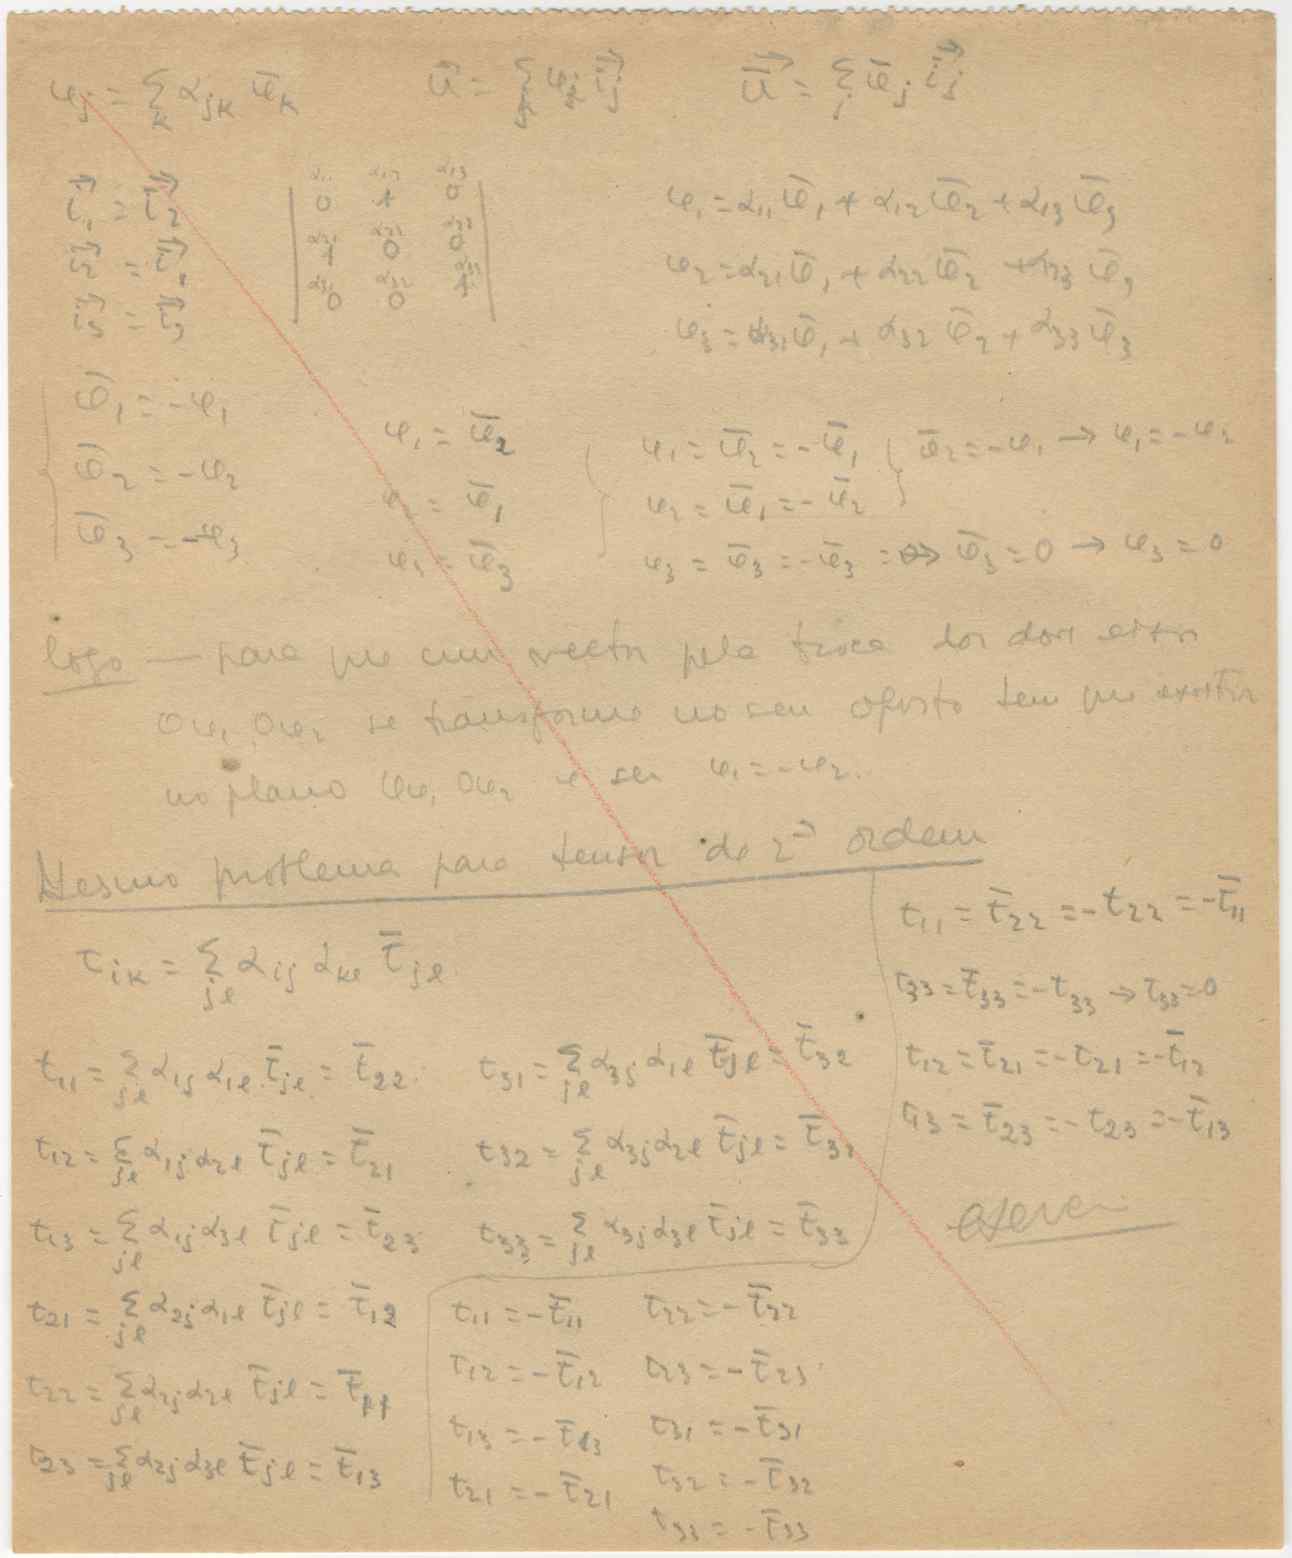 φj = Σ_k αjk φ̄k    u⃗ = Σ_j φj i⃗j    u̅⃗ = Σ_j φ̄j i̅⃗j
i̅⃗1 = i⃗2
i̅⃗2 = i⃗1
i̅⃗3 = i⃗3
α11 α12 α13
0 1 0
α21 α22 α23
1 0 0
α31 α32 α33
0 0 1
φ1 = α11 φ̄1 + α12 φ̄2 + α13 φ̄3
φ2 = α21 φ̄1 + α22 φ̄2 + α23 φ̄3
φ3 = α31 φ̄1 + α32 φ̄2 + α33 φ̄3
φ̄1 = -φ1
φ̄2 = -φ2
φ̄3 = -φ3
φ1 = φ̄2
φ2 = φ̄1
φ3 = φ̄3
φ1 = φ̄2 = -φ̄1 } φ̄2 = -φ1 → φ1 = -φ2
φ2 = φ̄1 = -φ̄2
φ3 = φ̄3 = -φ̄3 => φ̄3 = 0 → φ3 = 0
logo — para que um vector pela troca dos dois eixos
Oφ1 Oφ2 se transforme no seu oposto tem que existir
no plano Oφ1 Oφ2 e ser φ1 = -φ2.
Mesmo problema para tensor de 2ª ordem
tik = Σ_jl αij αkl t̄jl
t11 = Σ_jl α1j α1l t̄jl = t̄22
t12 = Σ_jl α1j α2l t̄jl = t̄21
t13 = Σ_jl α1j α3l t̄jl = t̄23
t21 = Σ_jl α2j α1l t̄jl = t̄12
t22 = Σ_jl α2j α2l t̄jl = t̄11
t23 = Σ_jl α2j α3l t̄jl = t̄13
t31 = Σ_jl α3j α1l t̄jl = t̄32
t32 = Σ_jl α3j α2l t̄jl = t̄31
t33 = Σ_jl α3j α3l t̄jl = t̄33
t11 = -t̄11    t22 = -t̄22
t12 = -t̄12    t23 = -t̄23
t13 = -t̄13    t31 = -t̄31
t21 = -t̄21    t32 = -t̄32
t33 = -t̄33
t11 = t̄22 = -t22 = -t̄11
t33 = t̄33 = -t33 → t33 = 0
t12 = t̄21 = -t21 = -t̄12
t13 = t̄23 = -t23 = -t̄13